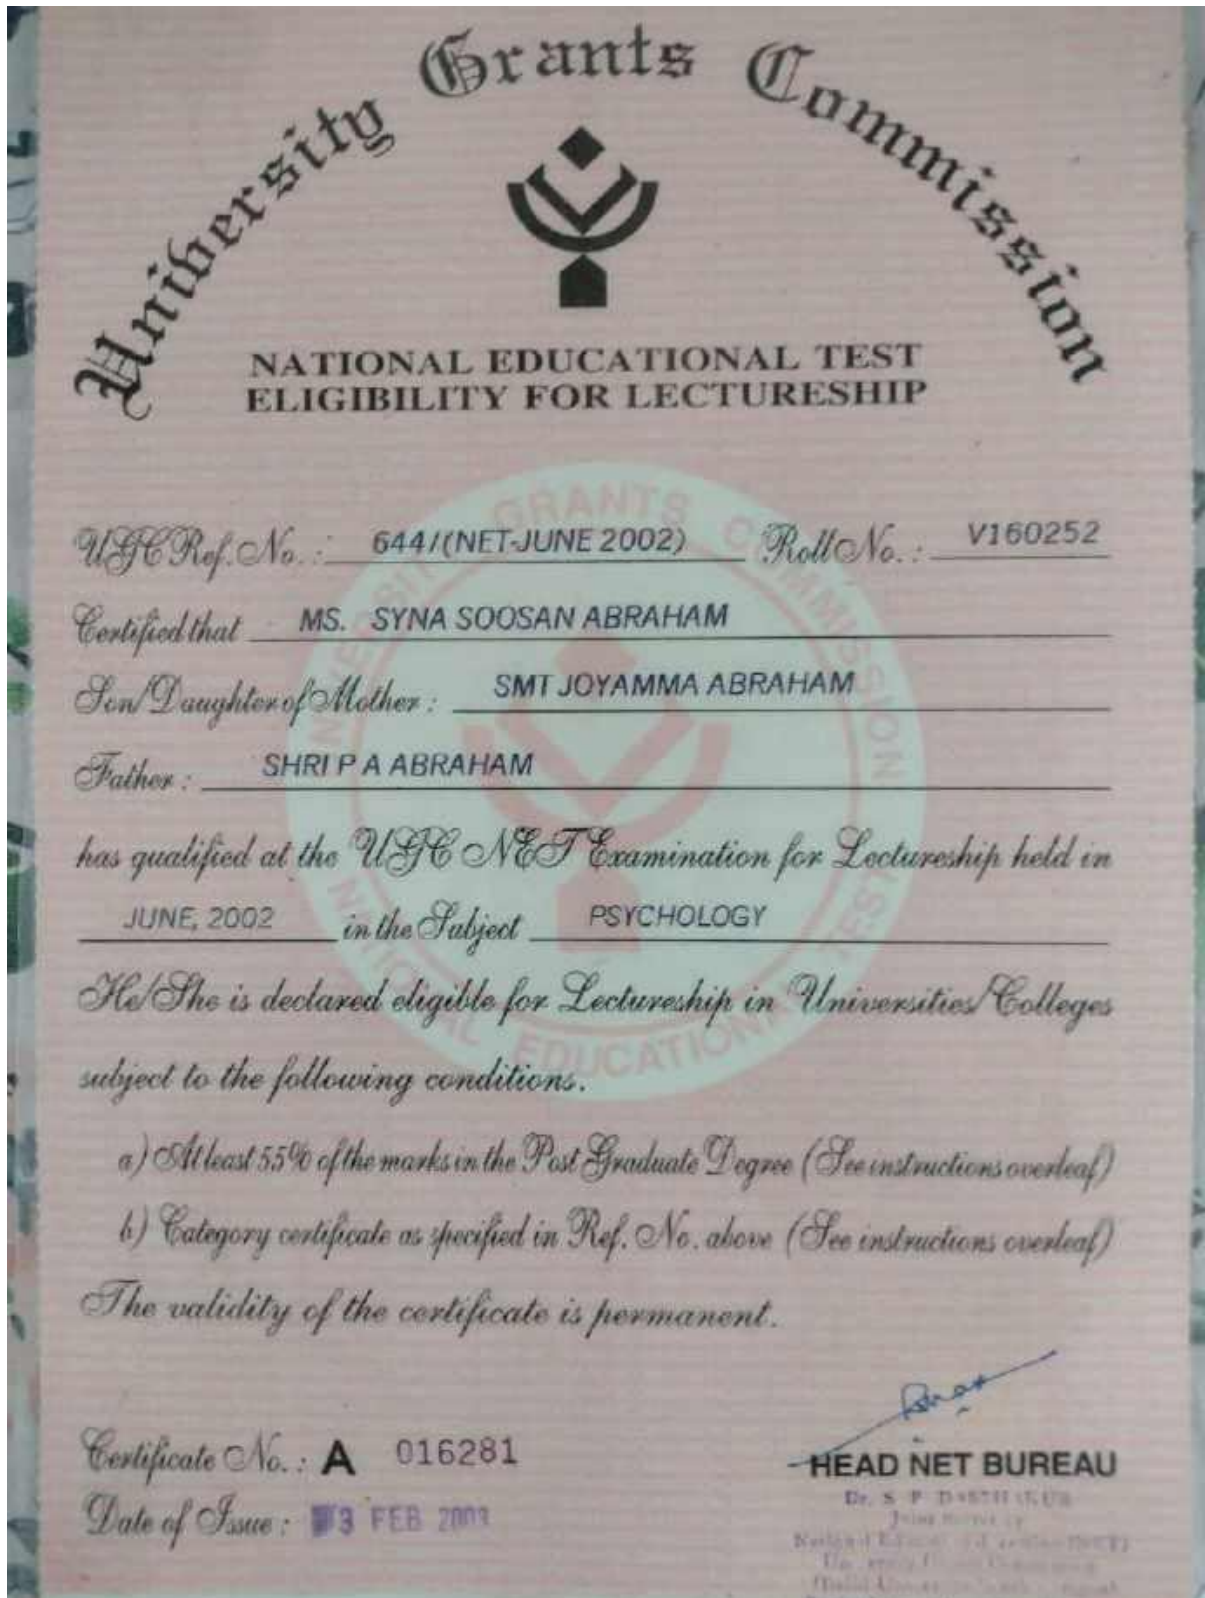 University Grants Commission
NATIONAL EDUCATIONAL TEST
ELIGIBILITY FOR LECTURESHIP
UGC Ref. No. : 644/(NET-JUNE 2002) Roll No. : V160252
Certified that MS. SYNA SOOSAN ABRAHAM
Son/Daughter of Mother : SMT JOYAMMA ABRAHAM
Father : SHRI P A ABRAHAM
has qualified at the UGC NET Examination for Lectureship held in
JUNE, 2002 in the Subject PSYCHOLOGY
He/She is declared eligible for Lectureship in Universities/Colleges
subject to the following conditions.
a) At least 55% of the marks in the Post Graduate Degree (See instructions overleaf)
b) Category certificate as specified in Ref. No. above (See instructions overleaf)
The validity of the certificate is permanent.
Certificate No. : A 016281
HEAD NET BUREAU
Date of Issue : 3 FEB 2003
Dr. S P
UNIVERSITY GRANTS COMMISSION
NATIONAL EDUCATIONAL TEST